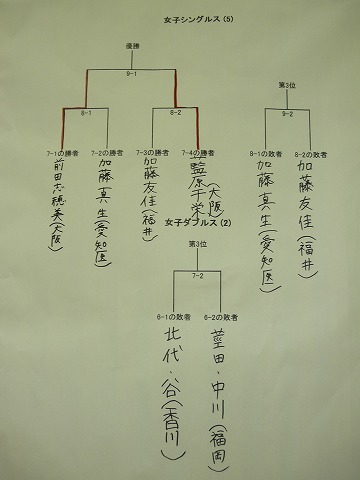 女子シングルス(5)
優勝
9-1
8-1
8-2
7-1の勝者
7-2の勝者
7-3の勝者
7-4の勝者
前田志穂美(大阪)
加藤真生(愛知医)
加藤友佳(福井)
監原千栄(大阪)
第3位
9-2
8-1の敗者
8-2の敗者
加藤真生(愛知医)
加藤友佳(福井)
女子ダブルス(2)
第3位
7-2
6-1の敗者
6-2の敗者
北代・谷(香川)
・中川(福岡)